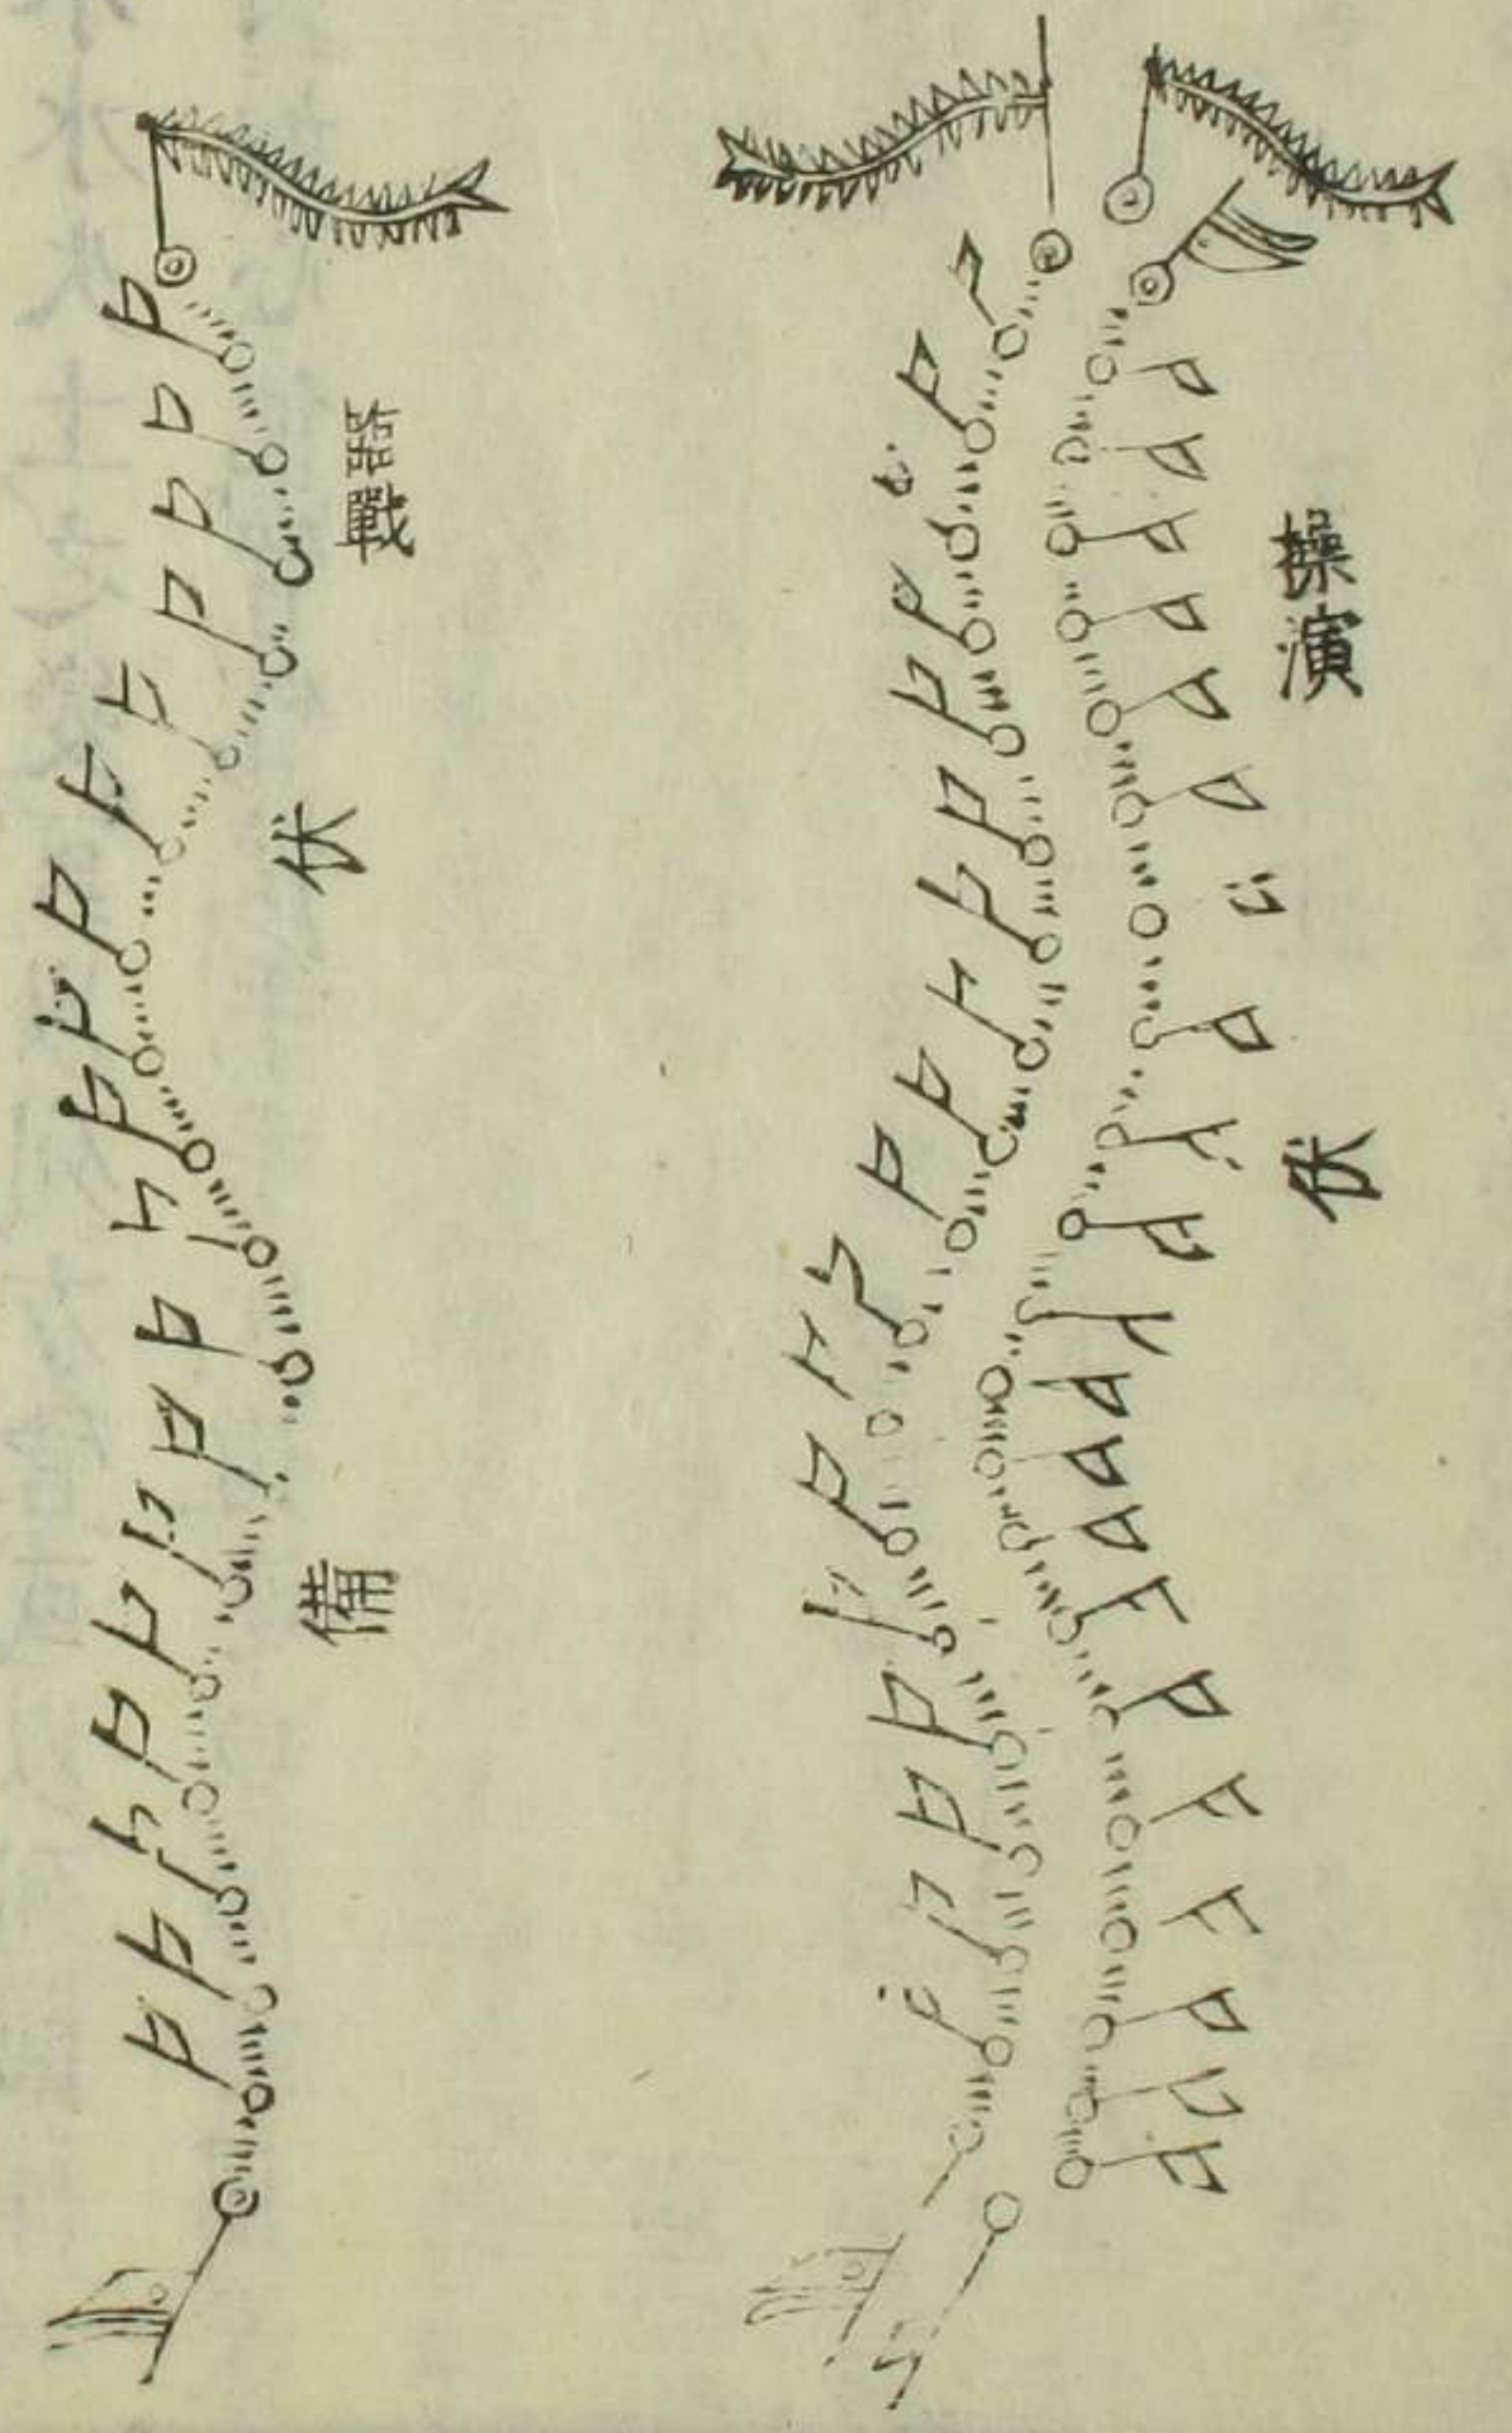 操演
伏
臨戰
伏
備